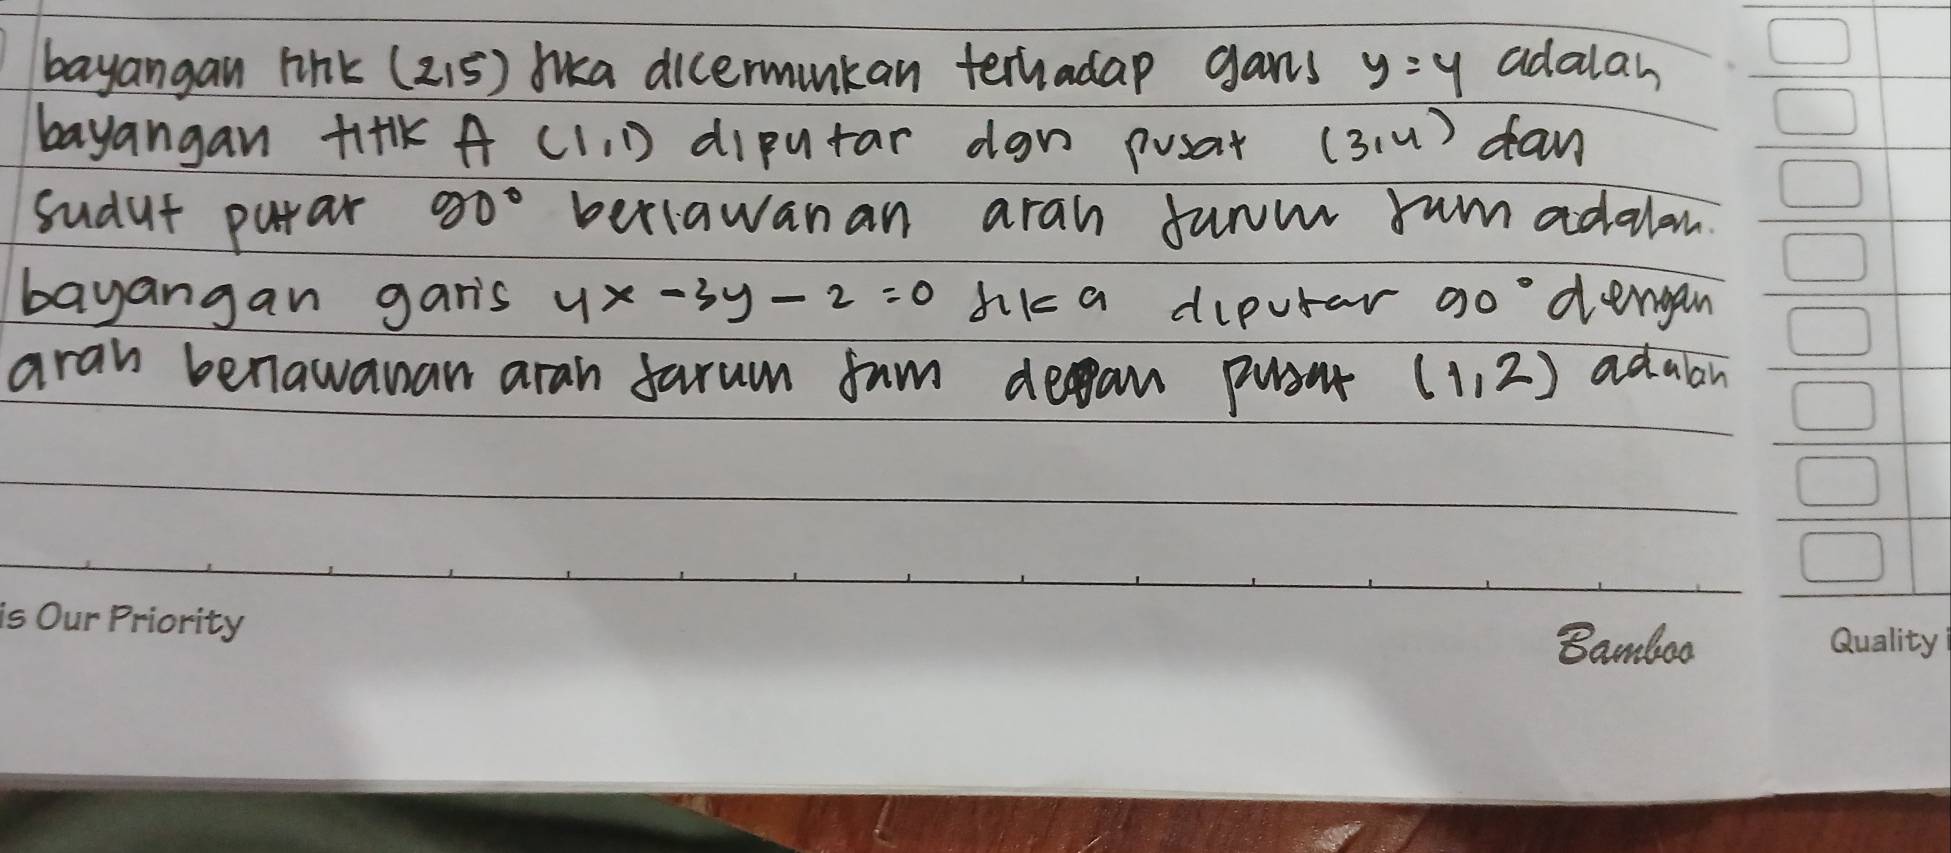 bayangan titik (2,5) jika dicerminkan terhadap garis y=4 adalah
bayangan titik A (1,1) diputar dgn pusat (3,4) dan
sudut putar 90° berlawanan arah jarum jam adalah.
bayangan garis 4x -3y - 2 =0 jika diputar 90° dengan
arah berlawanan arah jarum jam dengan pusat (1,2) adalah
is Our Priority
Bamboo
Quality